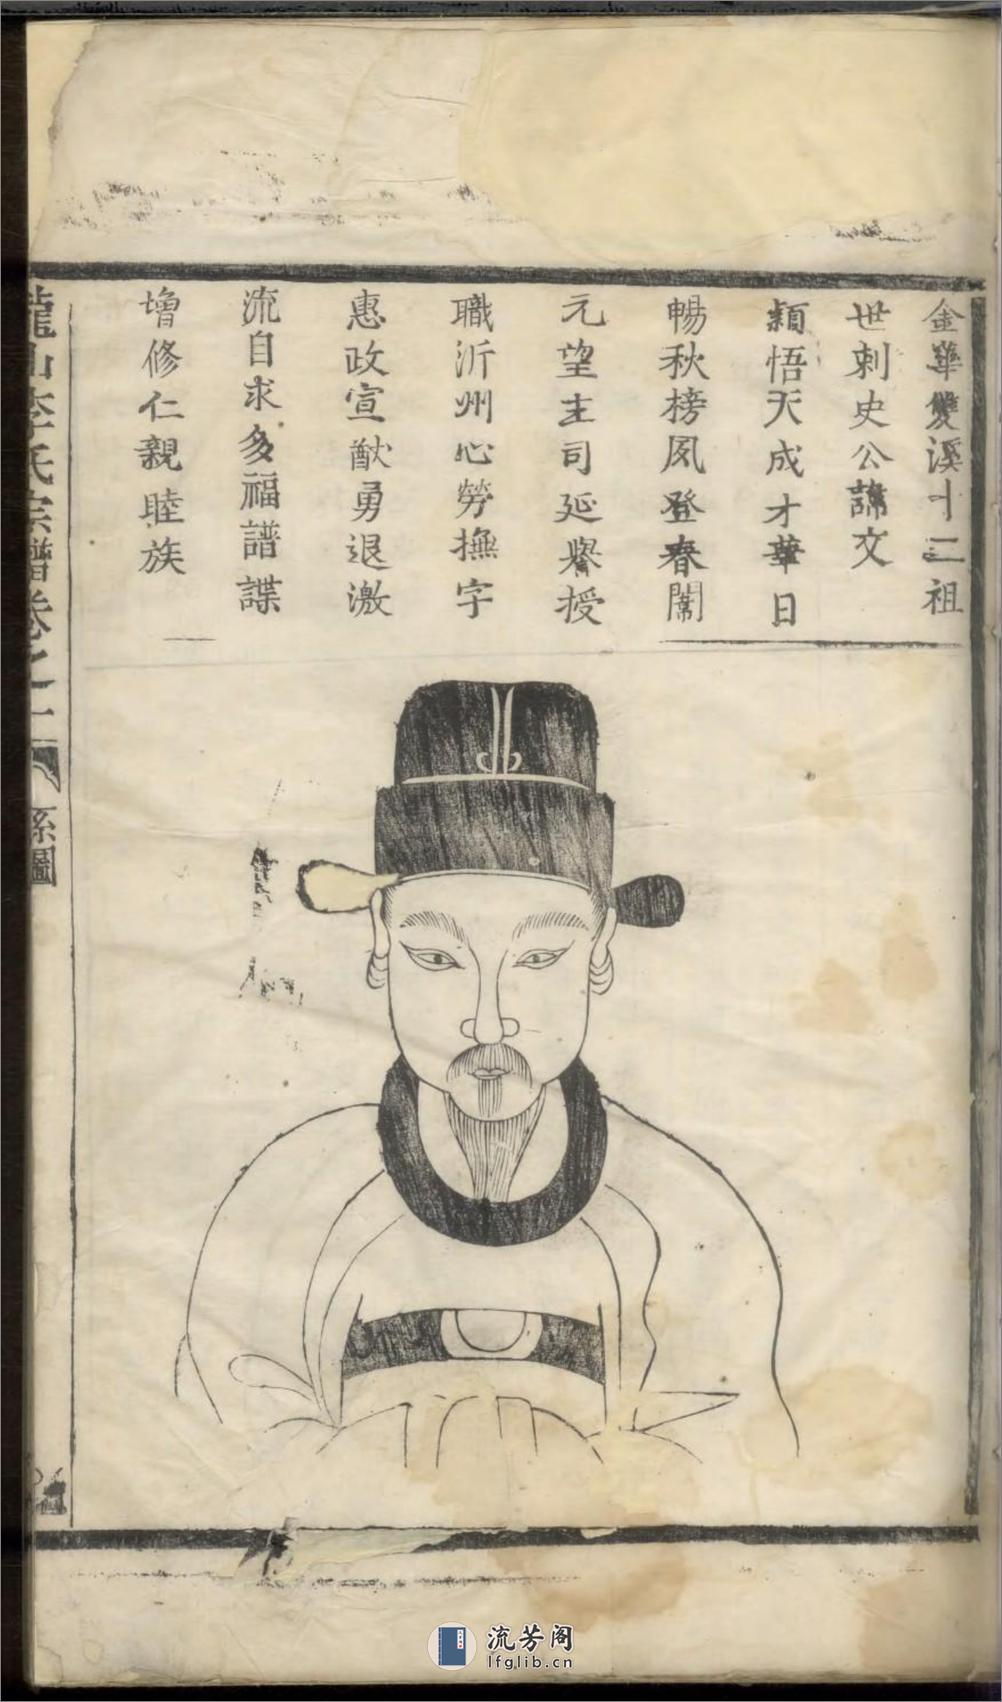 金華雙溪十二祖
世刺史公諱文
穎悟天成才華日
暢秋榜夙登春闈
元望主司延譽授
職沂州心勞撫字
惠政宣猷勇退激
流自求多福譜諜
增修仁親睦族
龍山李氏宗譜卷之一
系圖
流芳阁
lfglib.cn